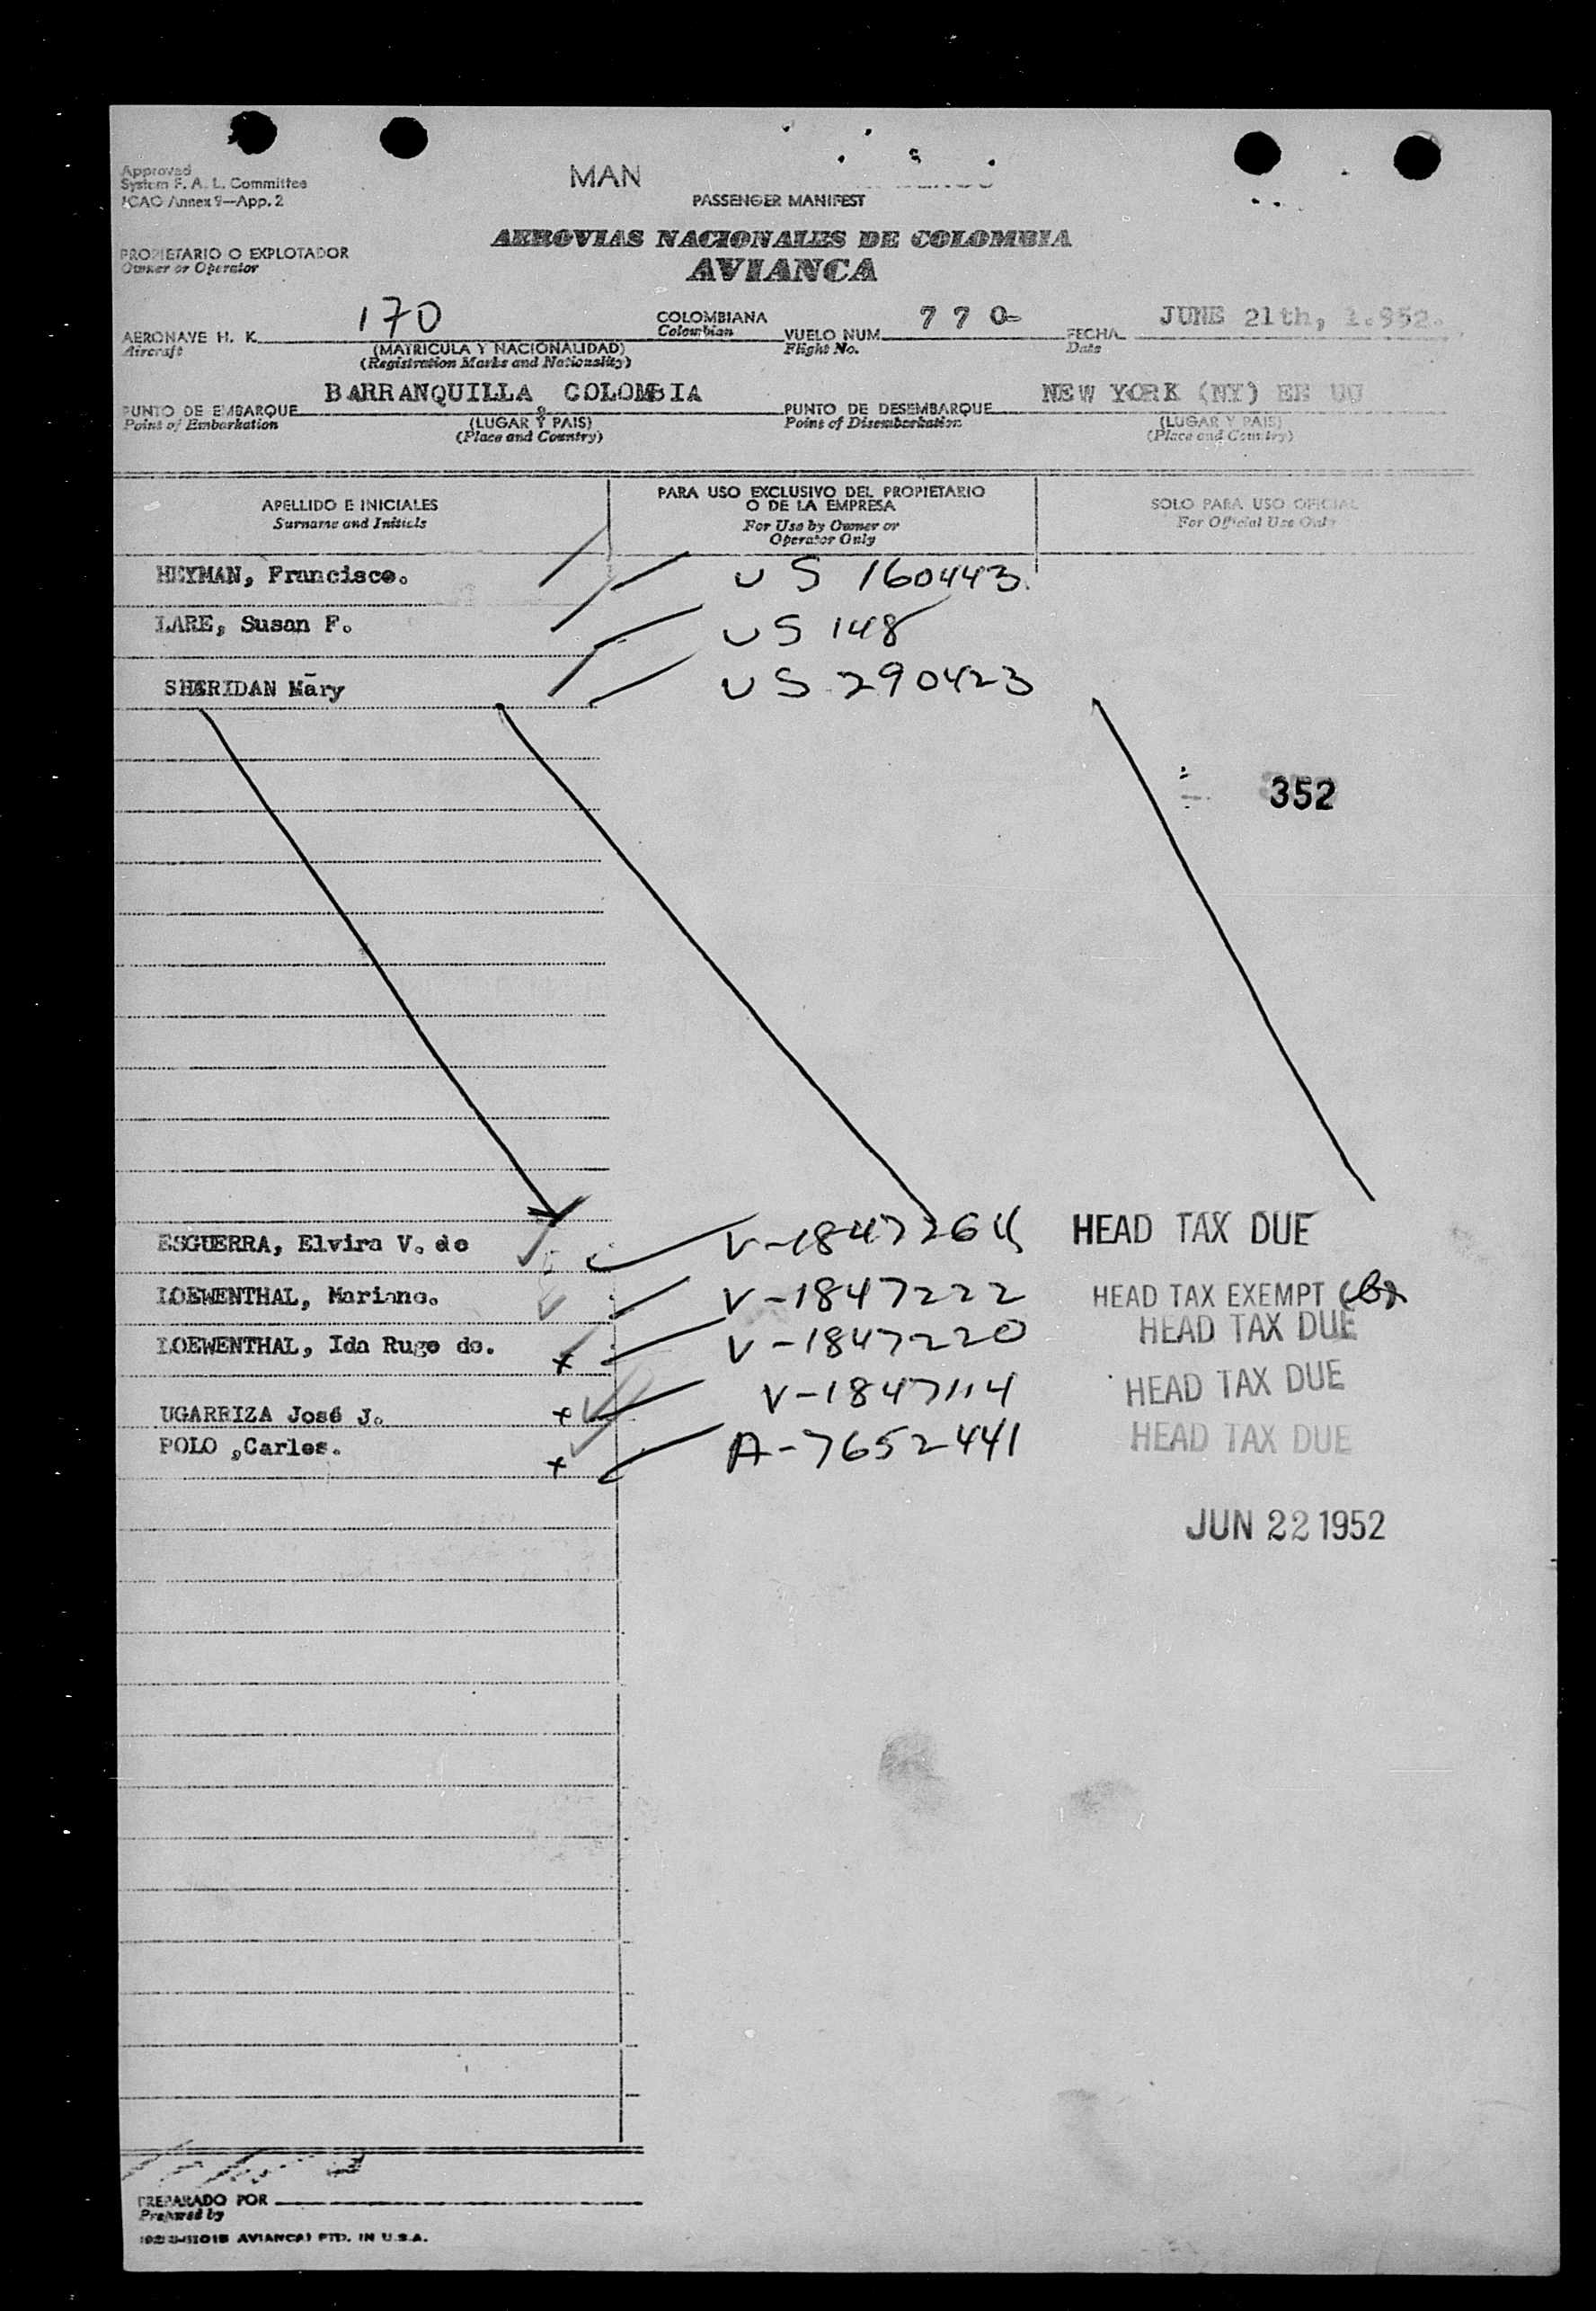 Approved
System F. A. L. Committee
ICAO Annex 9—App. 2
MAN
PASSENGER MANIFEST
PROPIETARIO O EXPLOTADOR
Owner or Operator
AEROVIAS NACIONALES DE COLOMBIA
AVIANCA
AERONAVE H. K. 170 COLOMBIANA VUELO NUM. 770- FECHA JUNE 21th, 1.952.
Aircraft (MATRICULA Y NACIONALIDAD) Colombian Flight No. Date
(Registration Marks and Nationality)
PUNTO DE EMBARQUE BARRANQUILLA, COLOMBIA PUNTO DE DESEMBARQUE NEW YORK (NY) EE UU
Point of Embarkation (LUGAR Y PAIS) Point of Disembarkation (LUGAR Y PAIS)
(Place and Country) (Place and Country)
APELLIDO E INICIALES PARA USO EXCLUSIVO DEL PROPIETARIO SOLO PARA USO OFICIAL
O DE LA EMPRESA
Surname and Initials For Use by Owner or For Official Use Only
Operator Only
HEYMAN, Francisco. US 160443
LARE, Susan F. US 148
SHERIDAN Mary US 290423
352
ESGUERRA, Elvira V. de HEAD TAX DUE
LOEWENTHAL, Mariano. V-1847222 HEAD TAX EXEMPT
LOEWENTHAL, Ida Ruge de. V-1847220 HEAD TAX DUE
UGARRIZA José J. V-1847114 HEAD TAX DUE
POLO ,Carlos. A-7652441 HEAD TAX DUE
JUN 22 1952
PREPARADO POR
Prepared by
AVIANCA) PTD. IN U.S.A.